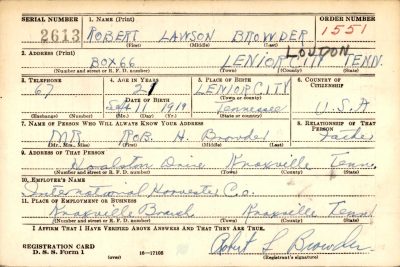 SERIAL NUMBER 1. NAME (Print) ORDER NUMBER
2613 ROBERT LAWSON BROWDER 1551
(First) (Middle) (Last)
2. ADDRESS (Print) LOUDON
BOX 66 LENIOR CITY TENN.
(Number and street or R. F. D. number) (Town) (County) (State)
3. TELEPHONE 4. AGE IN YEARS 5. PLACE OF BIRTH 6. COUNTRY OF CITIZENSHIP
67 21 LENIOR CITY
DATE OF BIRTH (Town or county)
Sept 11 1919 Tennessee U.S.A
(Exchange) (Number) (Mo.) (Day) (Yr.) (State or country)
7. NAME OF PERSON WHO WILL ALWAYS KNOW YOUR ADDRESS 8. RELATIONSHIP OF THAT PERSON
MR ROB. H. Browder Father
(Mr., Mrs., Miss) (First) (Middle) (Last)
9. ADDRESS OF THAT PERSON
Drive Knoxville Tenn.
(Number and street or R. F. D. number) (Town) (County) (State)
10. EMPLOYER'S NAME
International Harvester Co.
11. PLACE OF EMPLOYMENT OR BUSINESS
Knoxvill Branch Knoxville Tenn
(Number and street or R. F. D. number) (Town) (County) (State)
I AFFIRM THAT I HAVE VERIFIED ABOVE ANSWERS AND THAT THEY ARE TRUE.
REGISTRATION CARD Robert L Browder
D. S. S. Form 1 (over) 16—17105 (Registrant's signature)